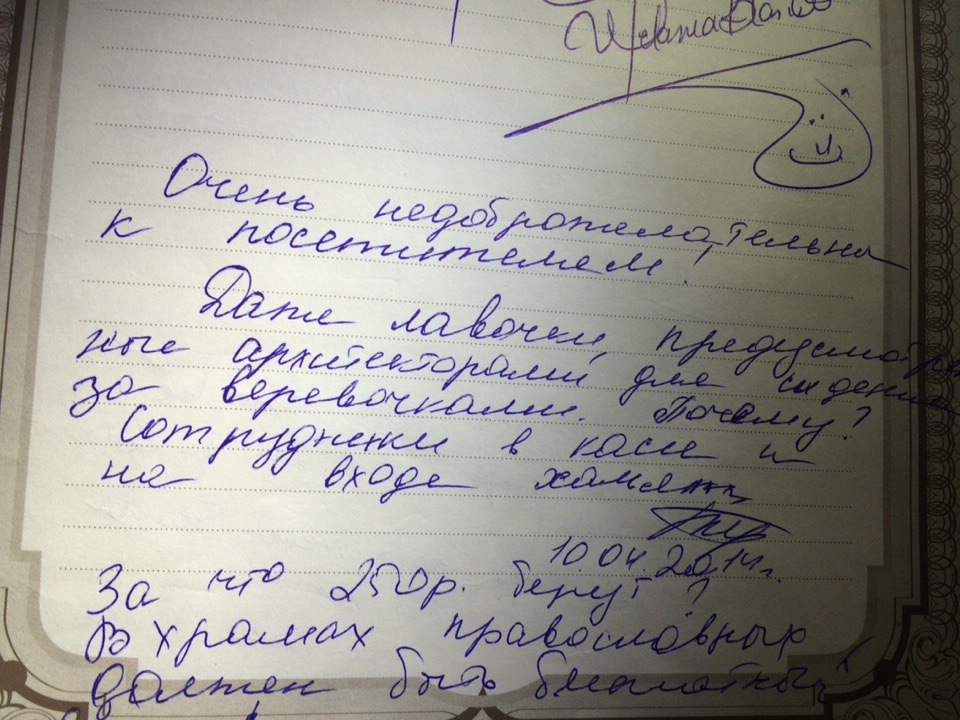 Очень недоброжелательны
к посетителям!
Даже лавочки, предусмотрен
ные архитекторами для сидения
за веревочками. Почему?
Сотрудники в кассе и
на входе хамят
10.04.2014г.
За что 250р. берут?
В храмах православных
должен быть бесплатный